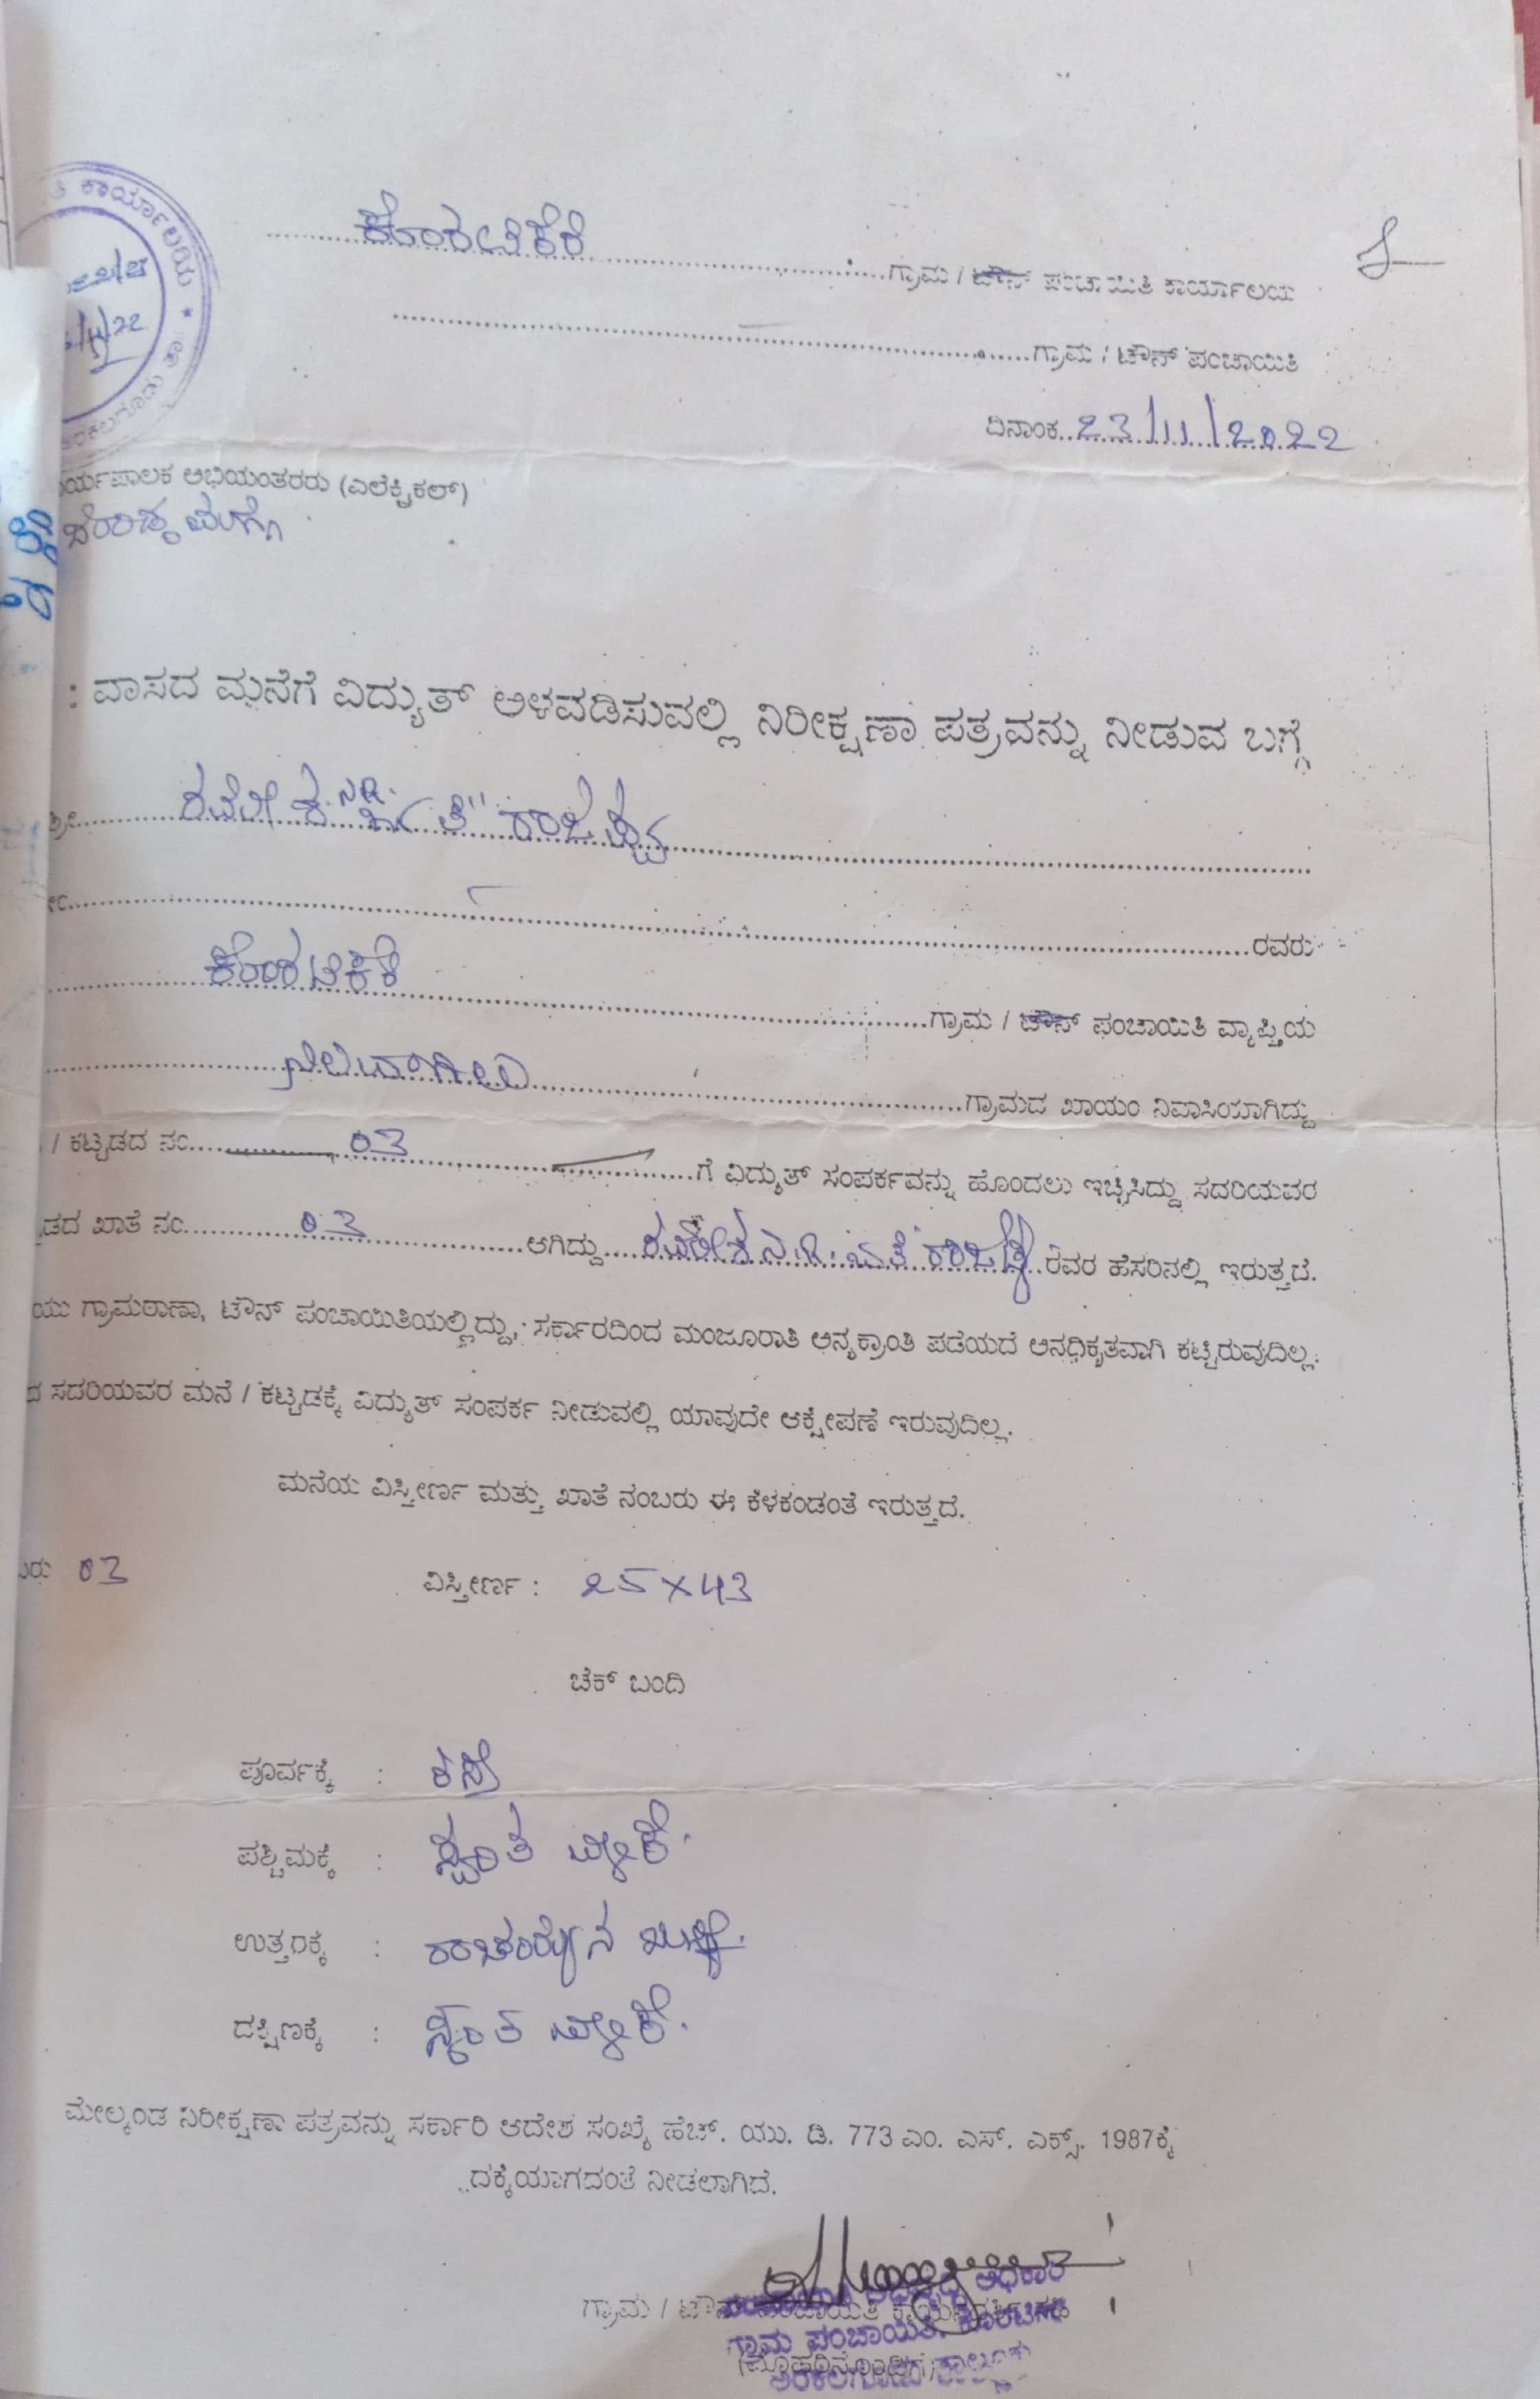 ಕಾರ್ಯಾಲಯ *
/22
ಕೊರಟಿಕೆರೆ ಗ್ರಾಮ / ಟೌನ್ ಪಂಚಾಯಿತಿ ಕಾರ್ಯಾಲಯ
ಗ್ರಾಮ / ಟೌನ್ ಪಂಚಾಯಿತಿ
ದಿನಾಂಕ 23/11/2022
ರ್ಯಪಾಲಕ ಅಭಿಯಂತರರು (ಎಲೆಕ್ಟ್ರಿಕಲ್)
: ವಾಸದ ಮನೆಗೆ ವಿದ್ಯುತ್ ಅಳವಡಿಸುವಲ್ಲಿ ನಿರೀಕ್ಷಣಾ ಪತ್ರವನ್ನು ನೀಡುವ ಬಗ್ಗೆ
ಶ್ರೀ
ರವರು
ಕೊರಟಿಕೆರೆ ಗ್ರಾಮ / ಟೌನ್ ಪಂಚಾಯಿತಿ ವ್ಯಾಪ್ತಿಯ
ನಿಲುವಾಗಿಲು ಗ್ರಾಮದ ಖಾಯಂ ನಿವಾಸಿಯಾಗಿದ್ದು
/ ಕಟ್ಟಡದ ನಂ. 03 ಗೆ ವಿದ್ಯುತ್ ಸಂಪರ್ಕವನ್ನು ಹೊಂದಲು ಇಚ್ಛಿಸಿದ್ದು ಸದರಿಯವರ
ಡದ ಖಾತೆ ನಂ. 03 ಆಗಿದ್ದು ರವರ ಹೆಸರಿನಲ್ಲಿ ಇರುತ್ತದೆ.
ಯು ಗ್ರಾಮಠಾಣಾ, ಟೌನ್ ಪಂಚಾಯಿತಿಯಲ್ಲಿದ್ದು, ಸರ್ಕಾರದಿಂದ ಮಂಜೂರಾತಿ ಅನ್ಯಕ್ರಾಂತಿ ಪಡೆಯದೆ ಅನಧಿಕೃತವಾಗಿ ಕಟ್ಟಿರುವುದಿಲ್ಲ.
ದ ಸದರಿಯವರ ಮನೆ / ಕಟ್ಟಡಕ್ಕೆ ವಿದ್ಯುತ್ ಸಂಪರ್ಕ ನೀಡುವಲ್ಲಿ ಯಾವುದೇ ಆಕ್ಷೇಪಣೆ ಇರುವುದಿಲ್ಲ.
ಮನೆಯ ವಿಸ್ತೀರ್ಣ ಮತ್ತು ಖಾತೆ ನಂಬರು ಈ ಕೆಳಕಂಡಂತೆ ಇರುತ್ತದೆ.
ಬರು 03 ವಿಸ್ತೀರ್ಣ : 25×43
ಚೆಕ್ ಬಂದಿ
ಪೂರ್ವಕ್ಕೆ : ರಸ್ತೆ
ಪಶ್ಚಿಮಕ್ಕೆ : ಸ್ವಂತ
ಉತ್ತರಕ್ಕೆ :
ದಕ್ಷಿಣಕ್ಕೆ : ಸ್ವಂತ
ಮೇಲ್ಕಂಡ ನಿರೀಕ್ಷಣಾ ಪತ್ರವನ್ನು ಸರ್ಕಾರಿ ಆದೇಶ ಸಂಖ್ಯೆ ಹೆಚ್. ಯು. ಡಿ. 773 ಎಂ. ಎಸ್. ಎಕ್ಸ್. 1987ಕ್ಕೆ
ದಕ್ಕೆಯಾಗದಂತೆ ನೀಡಲಾಗಿದೆ.
ಗ್ರಾಮ / ಟೌನ್ ಪಂಚಾಯಿತಿ
ಗ್ರಾಮ ಪಂಚಾಯಿತಿ, ಕೊರಟಿಕೆರೆ
ಅರಕಲಗೂಡು ತಾಲ್ಲೂಕು